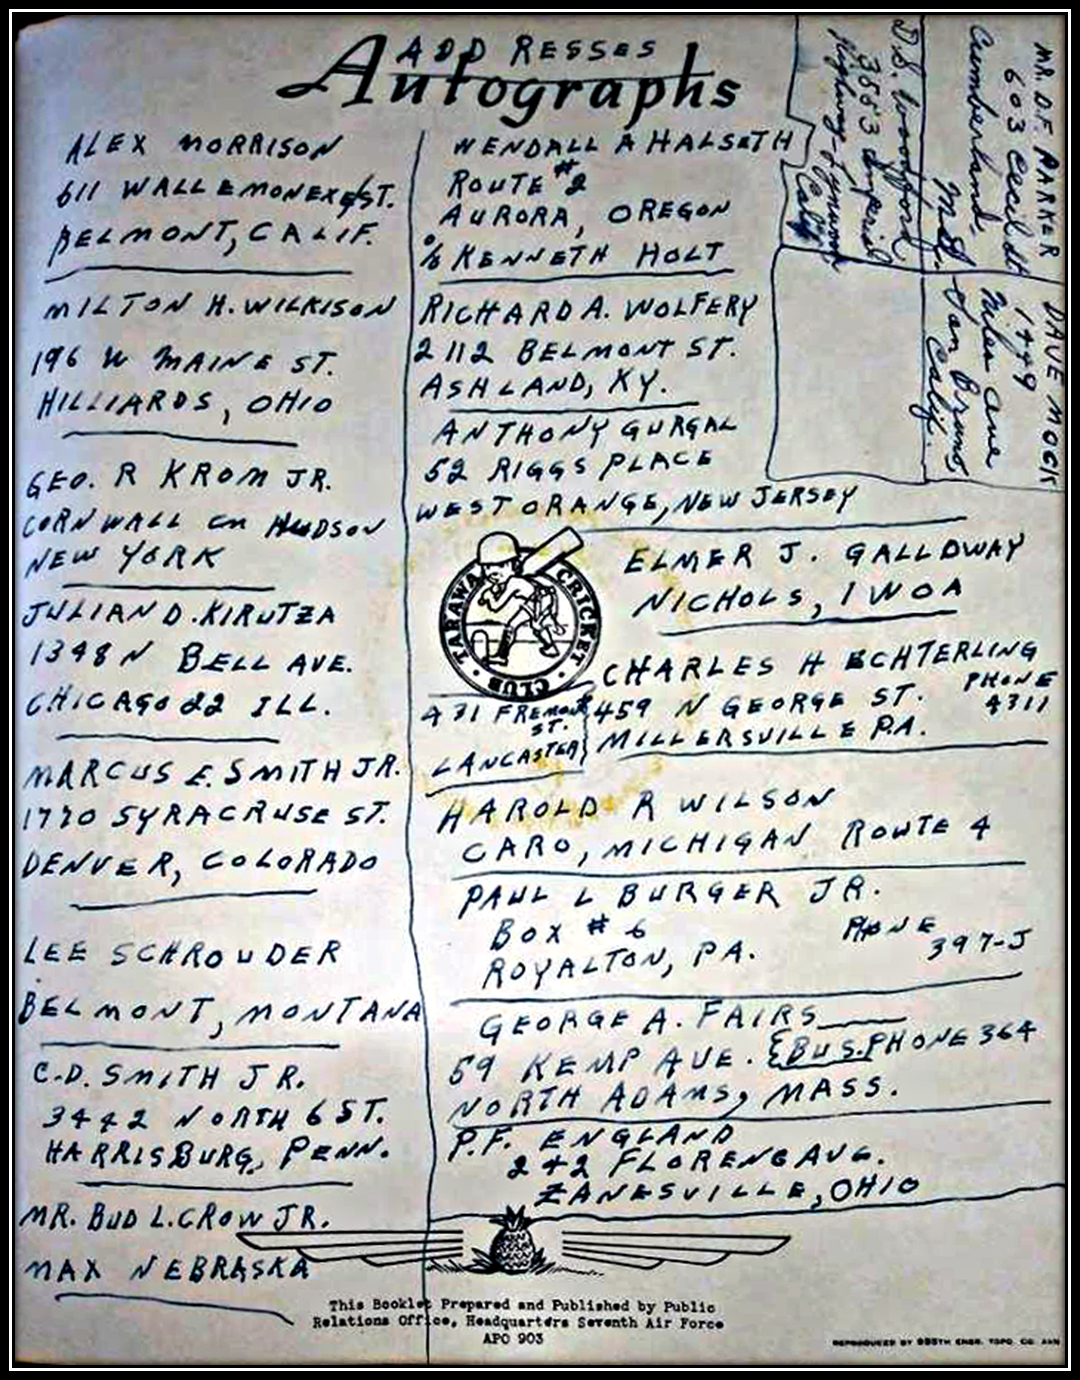 ADDRESSES
Autographs
ALEX MORRISON
611 WALLEMONEX ST.
BELMONT, CALIF.
MILTON H. WILKISON
196 W MAINE ST.
HILLIARDS, OHIO
GEO. R KROM JR.
CORNWALL on HUDSON
NEW YORK
JULIAN D. KIRUTZA
1348 N BELL AVE.
CHICAGO 22 ILL.
MARCUS E. SMITH JR.
1770 SYRACRUSE ST.
DENVER, COLORADO
LEE SCHROUDER
BELMONT, MONTANA
C.D. SMITH JR.
3442 NORTH 6 ST.
HARRISBURG, PENN.
MR. BUD L. CROW JR.
MAX NEBRASKA
WENDALL A HALSETH
ROUTE #2
AURORA, OREGON
% KENNETH HOLT
RICHARD A. WOLFERY
2112 BELMONT ST.
ASHLAND, KY.
ANTHONY GURGAL
52 RIGGS PLACE
WEST ORANGE, NEW JERSEY
ELMER J. GALLOWAY
NICHOLS, IWOA
TARAWA CRICKET CLUB
CHARLES H ECHTERLING
459 N GEORGE ST. PHONE 4311
MILLERSVILLE PA.
431 FREMONT
ST.
LANCASTER
HAROLD R WILSON
CARO, MICHIGAN ROUTE 4
PAUL L BURGER JR.
BOX #6 PHONE
ROYALTON, PA. 397-J
GEORGE A. FAIRS
59 KEMP AVE. BUS. PHONE 364
NORTH ADAMS, MASS.
P.F. ENGLAND
242 FLORENC AVE.
ZANESVILLE, OHIO
MR. D.F. PARKER
603 Cecil St
Cumberland,
Md.
DAVE MOCK
1449
Niles Ave
San Bruno
Calif.
D.S. Woodford
3553 Imperial
Highway-Lynwood
Calif
This Booklet Prepared and Published by Public
Relations Office, Headquarters Seventh Air Force
APO 903
REPRODUCED BY ENGR. TOPO. CO.